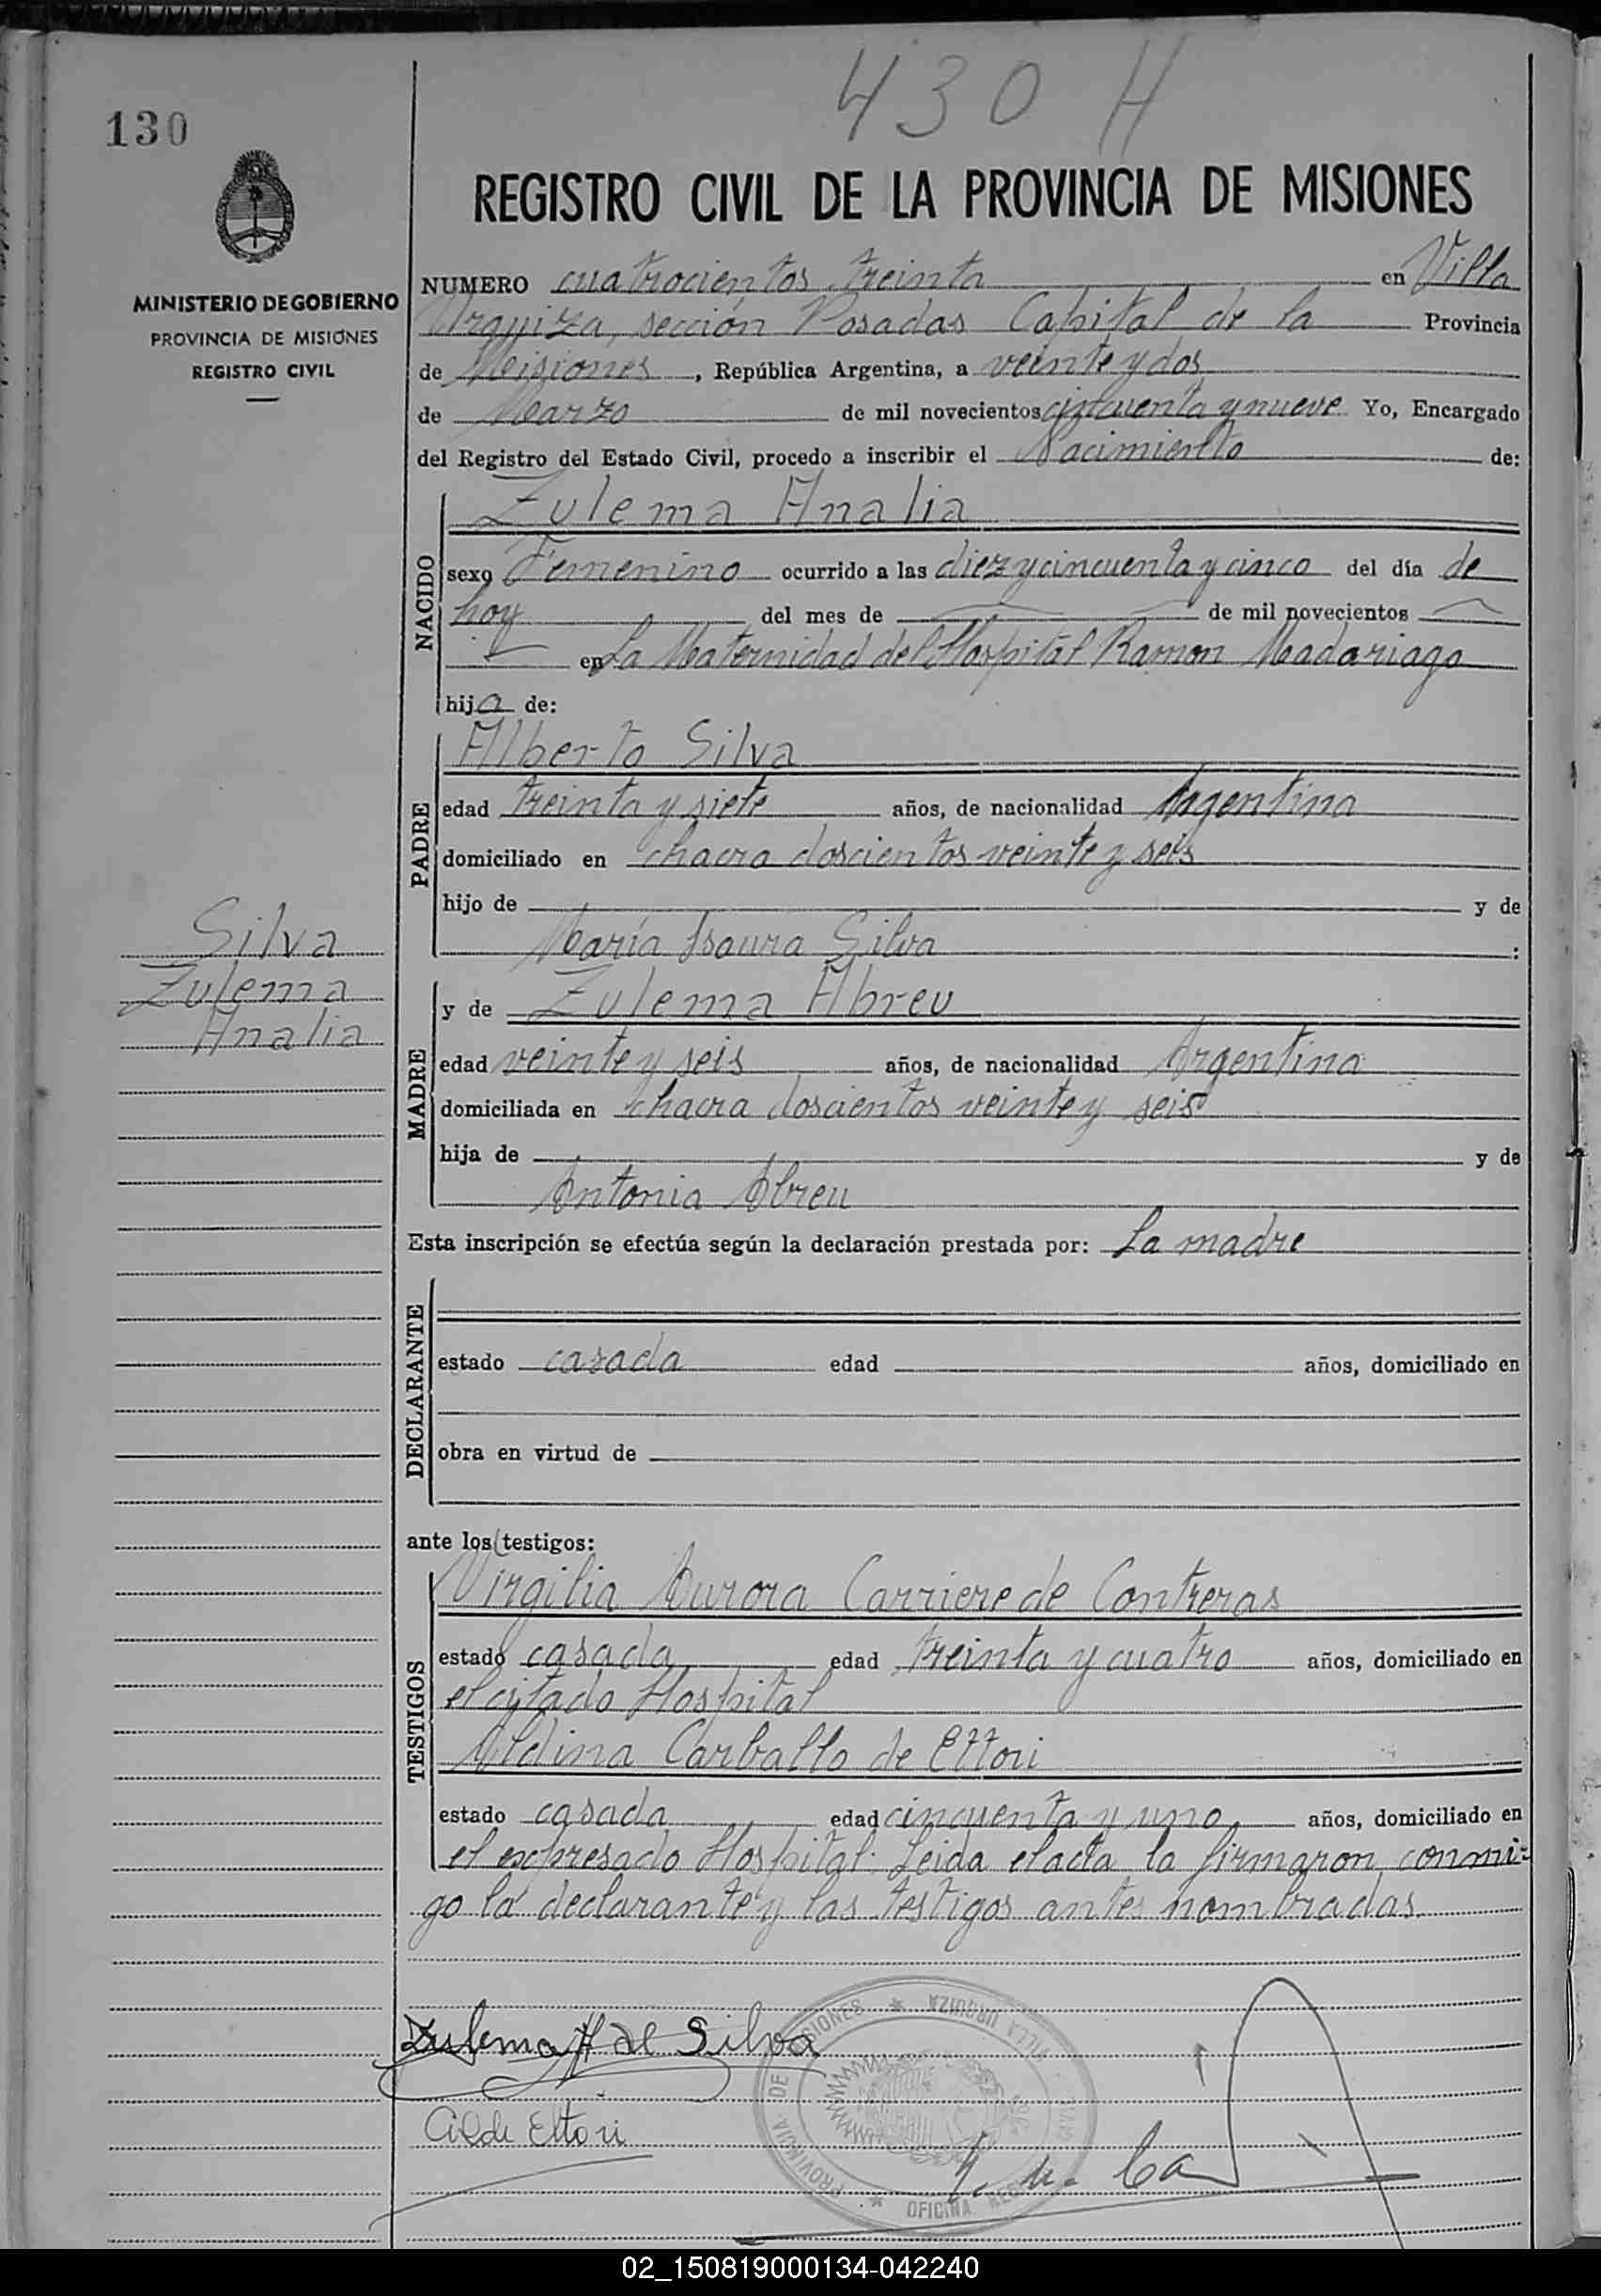 430 H
130
REGISTRO CIVIL DE LA PROVINCIA DE MISIONES
MINISTERIO DE GOBIERNO
PROVINCIA DE MISIONES
REGISTRO CIVIL
NUMERO cuatrocientos treinta en Villa
Urquiza, sección Posadas Capital de la Provincia
de Misiones, República Argentina, a veinte y dos
de Marzo de mil novecientos cincuenta y nueve Yo, Encargado
del Registro del Estado Civil, procedo a inscribir el Nacimiento de:
NACIDO
Zulema Analia
sexo Femenino ocurrido a las diez y cincuenta y cinco del día de
hoy del mes de de mil novecientos
en La Maternidad del Hospital Ramon Madariaga
hija de:
PADRE
Alberto Silva
edad treinta y siete años, de nacionalidad Argentina
domiciliado en chacra doscientos veinte y seis
hijo de y de
María Isaura Silva :
Silva
Zulema
Analia
MADRE
y de Zulema Abreu
edad veinte y seis años, de nacionalidad Argentina
domiciliada en chacra doscientos veinte y seis
hija de y de
Antonia Abreu
Esta inscripción se efectúa según la declaración prestada por: La madre
DECLARANTE
estado casada edad años, domiciliado en
obra en virtud de
ante los testigos:
TESTIGOS
Virgilia Aurora Carriere de Contreras
estado casada edad treinta y cuatro años, domiciliado en
el citado Hospital
Aldina Carballo de Ettori
estado casada edad cincuenta y uno años, domiciliado en
el expresado Hospital. Leida el acta la firmaron conmi-
go la declarante y las testigos antes nombradas.
Zulema A de Silva
PROVINCIA DE MISIONES * VILLA URQUIZA
OFICINA
Ettori
02_150819000134-042240